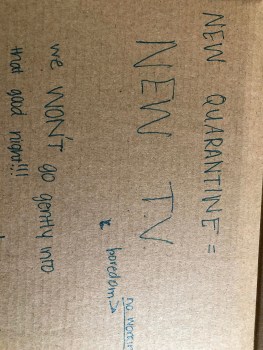 NEW QUARANTINE =
NEW TV
boredom>
we WON'T go gently into
that good night!!!